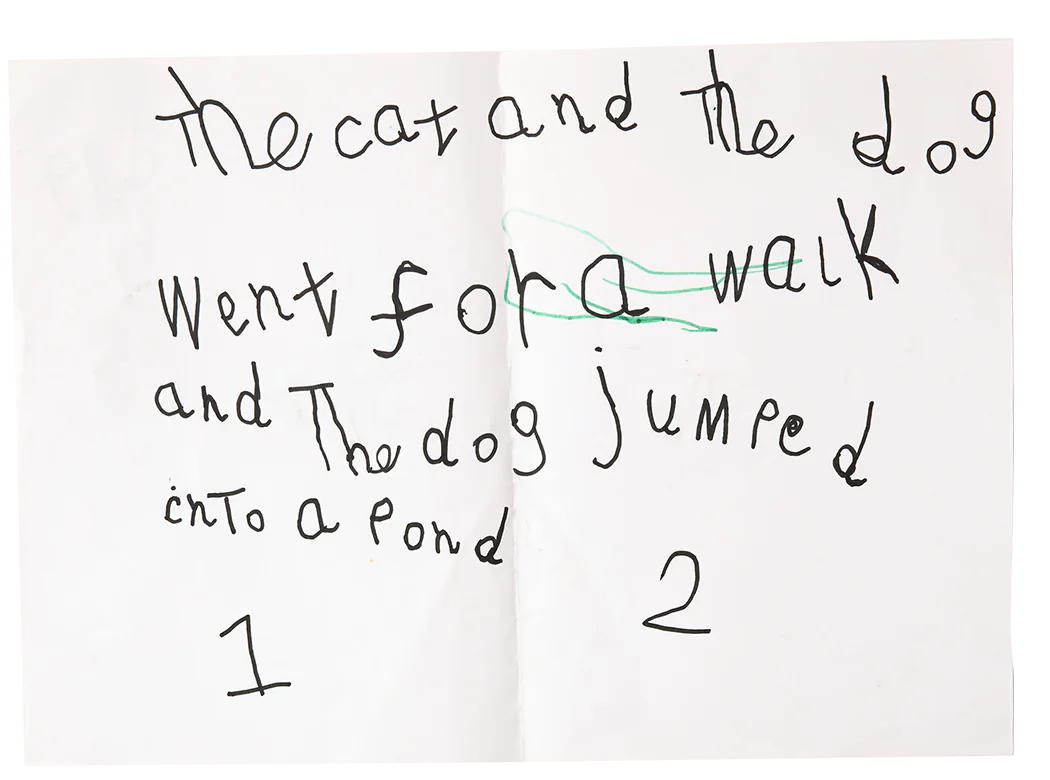 The cat and The dog
went for a walk
and The dog jumped
into a Pond
1 2